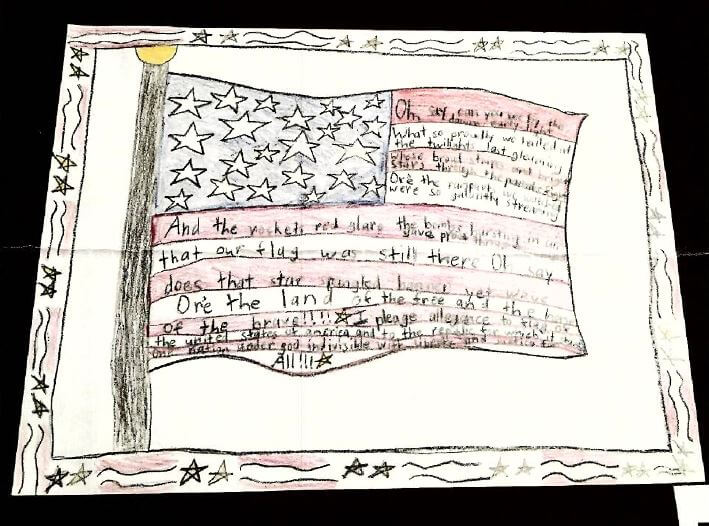 Oh, say, can you see by the
dawns early light
What so proudly we hailed at
the twilights last gleaming
whose broad stripes and
stars through the
Ore the rampart we
were so galantly streaming
And the rockets red glare the bombs bursting in air
gave proof through
that our flag was still there O! say
does that star spangled banner yet wave
Ore the land of the free and the home
of the brave!!!! I pleage allegance to
the united states of america and to the republic for which it
one nation under god indivisible with and justice for
All!!!